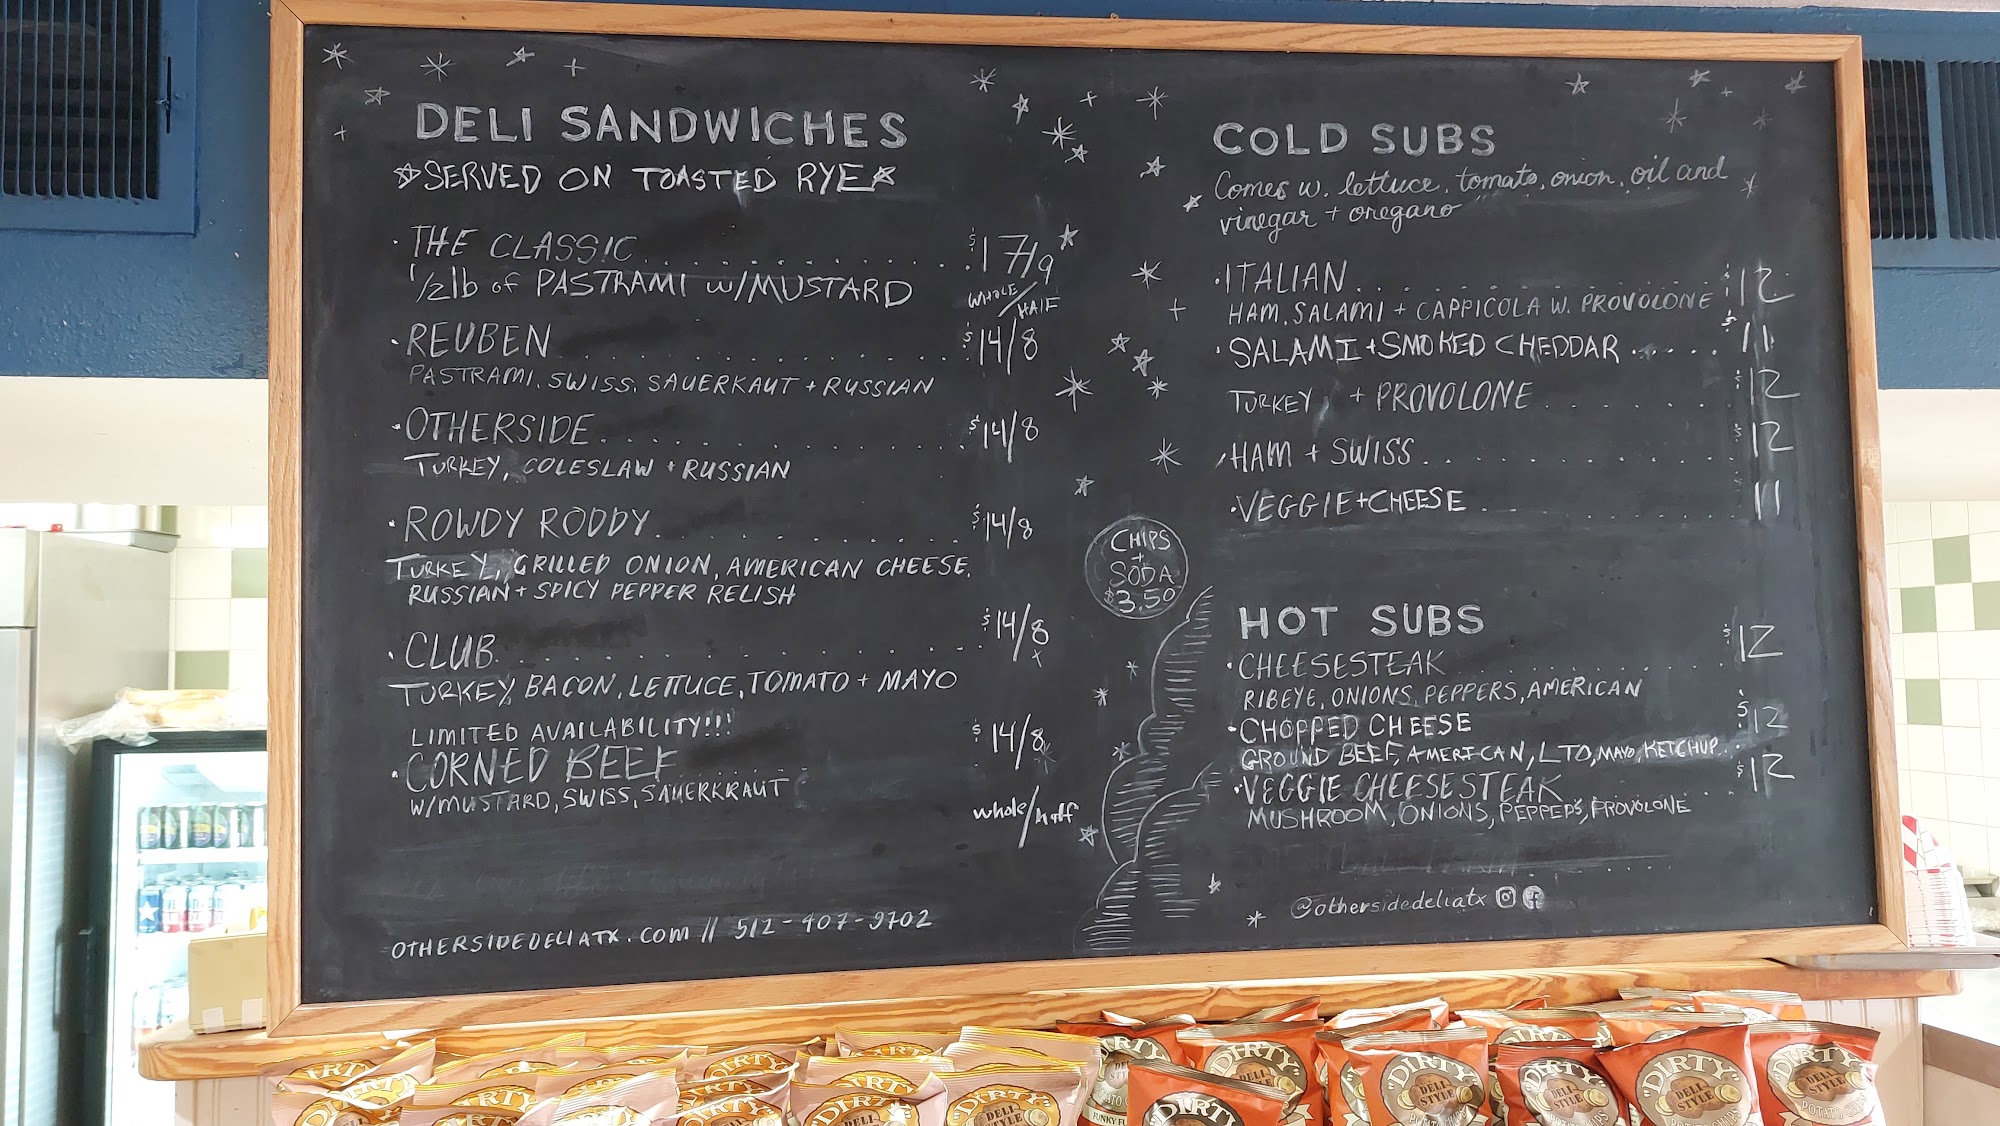 DELI SANDWICHES
SERVED ON TOASTED RYE
THE CLASSIC $17/9
1/2 lb of PASTRAMI w/MUSTARD
WHOLE/HALF
REUBEN $14/8
PASTRAMI, SWISS, SAUERKAUT + RUSSIAN
OTHERSIDE $14/8
TURKEY, COLESLAW + RUSSIAN
ROWDY RODDY $14/8
TURKEY, GRILLED ONION, AMERICAN CHEESE,
RUSSIAN + SPICY PEPPER RELISH
CLUB $14/8
TURKEY, BACON, LETTUCE, TOMATO + MAYO
LIMITED AVAILABILITY!!!
CORNED BEEF $14/8
W/MUSTARD, SWISS, SAUERKRAUT
whole/half
OTHERSIDEDELIATX.COM // 512-407-9702
CHIPS
+
SODA
$3.50
COLD SUBS
Comes w. lettuce, tomato, onion, oil and
vinegar + oregano
ITALIAN $12
HAM, SALAMI + CAPPICOLA W. PROVOLONE
SALAMI + SMOKED CHEDDAR $11
TURKEY + PROVOLONE $12
HAM + SWISS $12
VEGGIE + CHEESE 11
HOT SUBS
CHEESESTEAK $12
RIBEYE, ONIONS, PEPPERS, AMERICAN
CHOPPED CHEESE $12
GROUND BEEF, AMERICAN, LTO, MAYO, KETCHUP
VEGGIE CHEESESTEAK $12
MUSHROOM, ONIONS, PEPPERS, PROVOLONE
@othersidedeliatx
DIRTY
DELI-STYLE
POTATO CHIPS